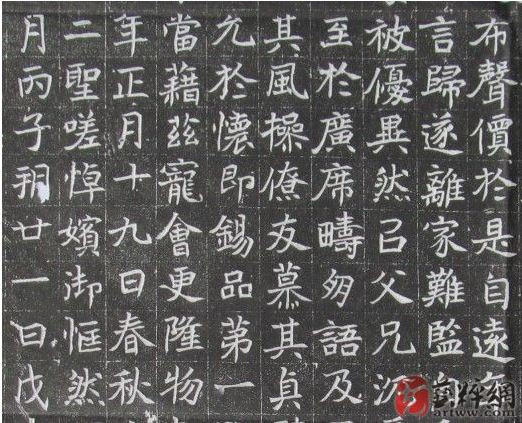 布聲價於是自遠
言歸遂離家難監
被優異然㠯父兄沉
至於廣席疇語及
其風操僚友慕其貞
允於懷即錫品第一
當藉茲寵會更隆物
年正月十九日春秋
二聖嗟悼嬪御恇然
月丙子朔廿一日戊
藝粹網
artww.com